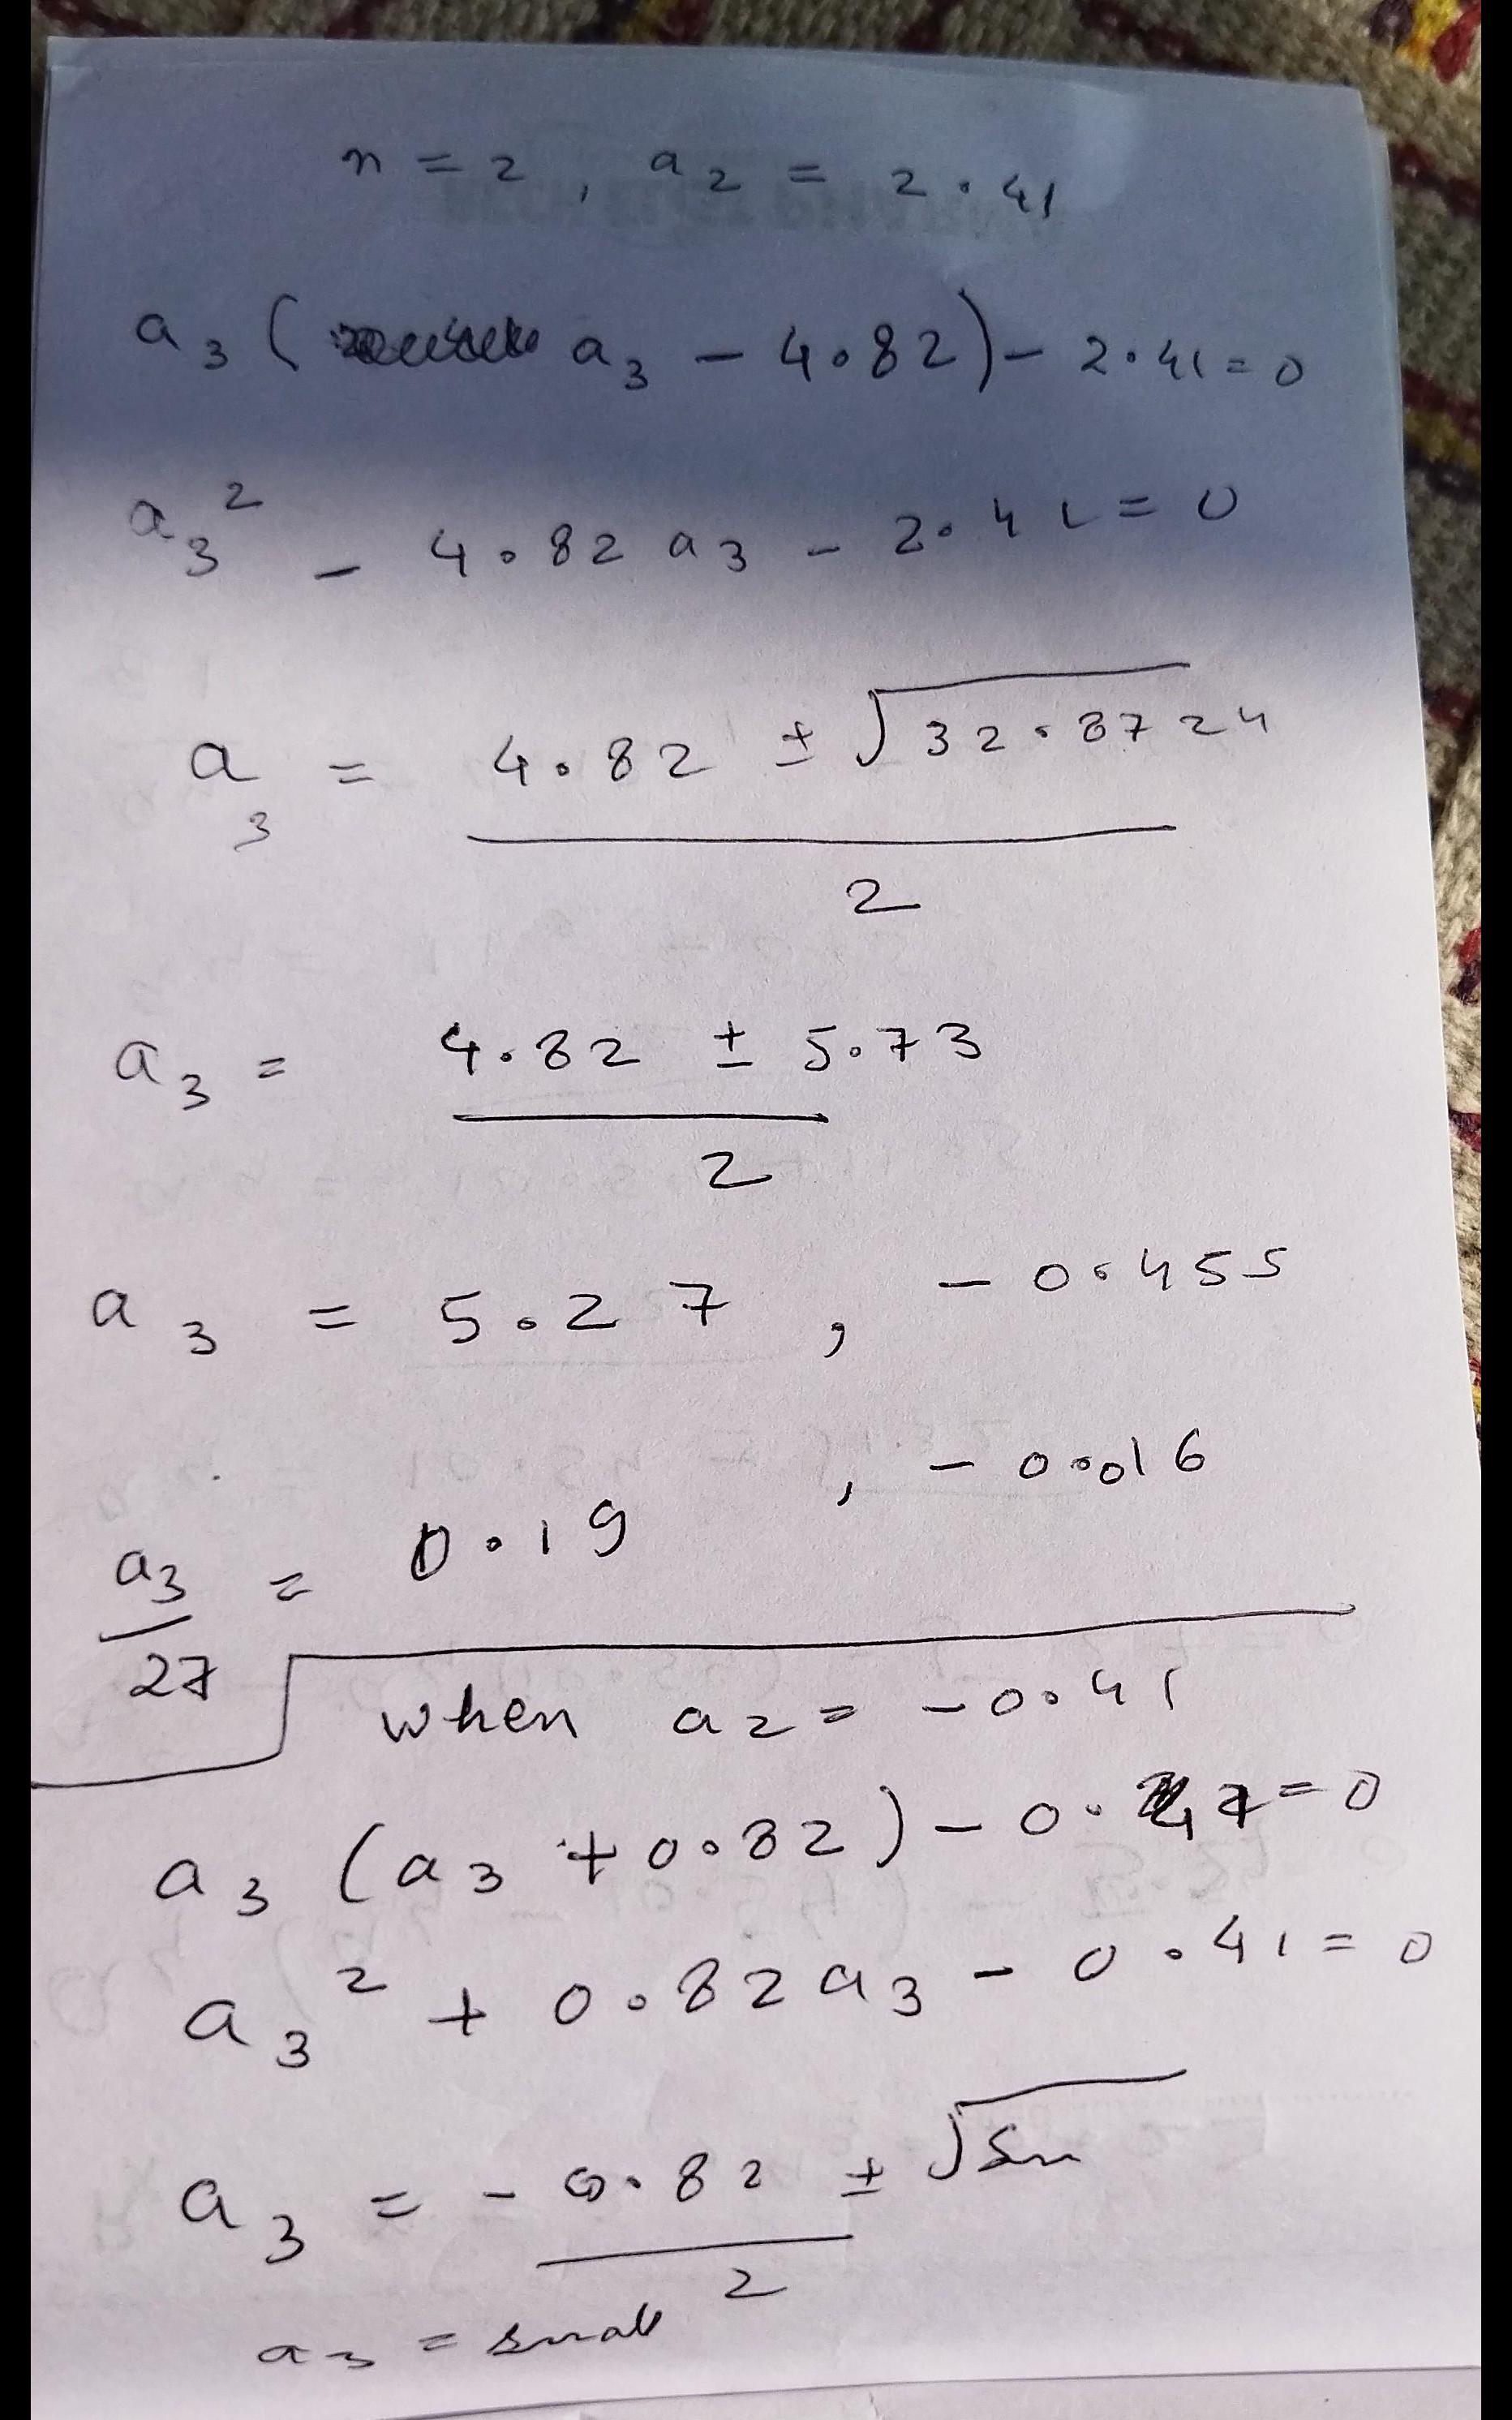 n = 2 , a2 = 2.41
a3 ( a3 - 4.82) - 2.41 = 0
a3² - 4.82 a3 - 2.41 = 0
a3 = 4.82 ± √32.8724
2
a3 = 4.82 ± 5.73
2
a3 = 5.27 , - 0.455
a3 = 0.19 , - 0.016
27
when a2 = - 0.41
a3 (a3 + 0.82) - 0.41 = 0
a3² + 0.82 a3 - 0.41 = 0
a3 = - 0.82 ± √
2
a3 = small